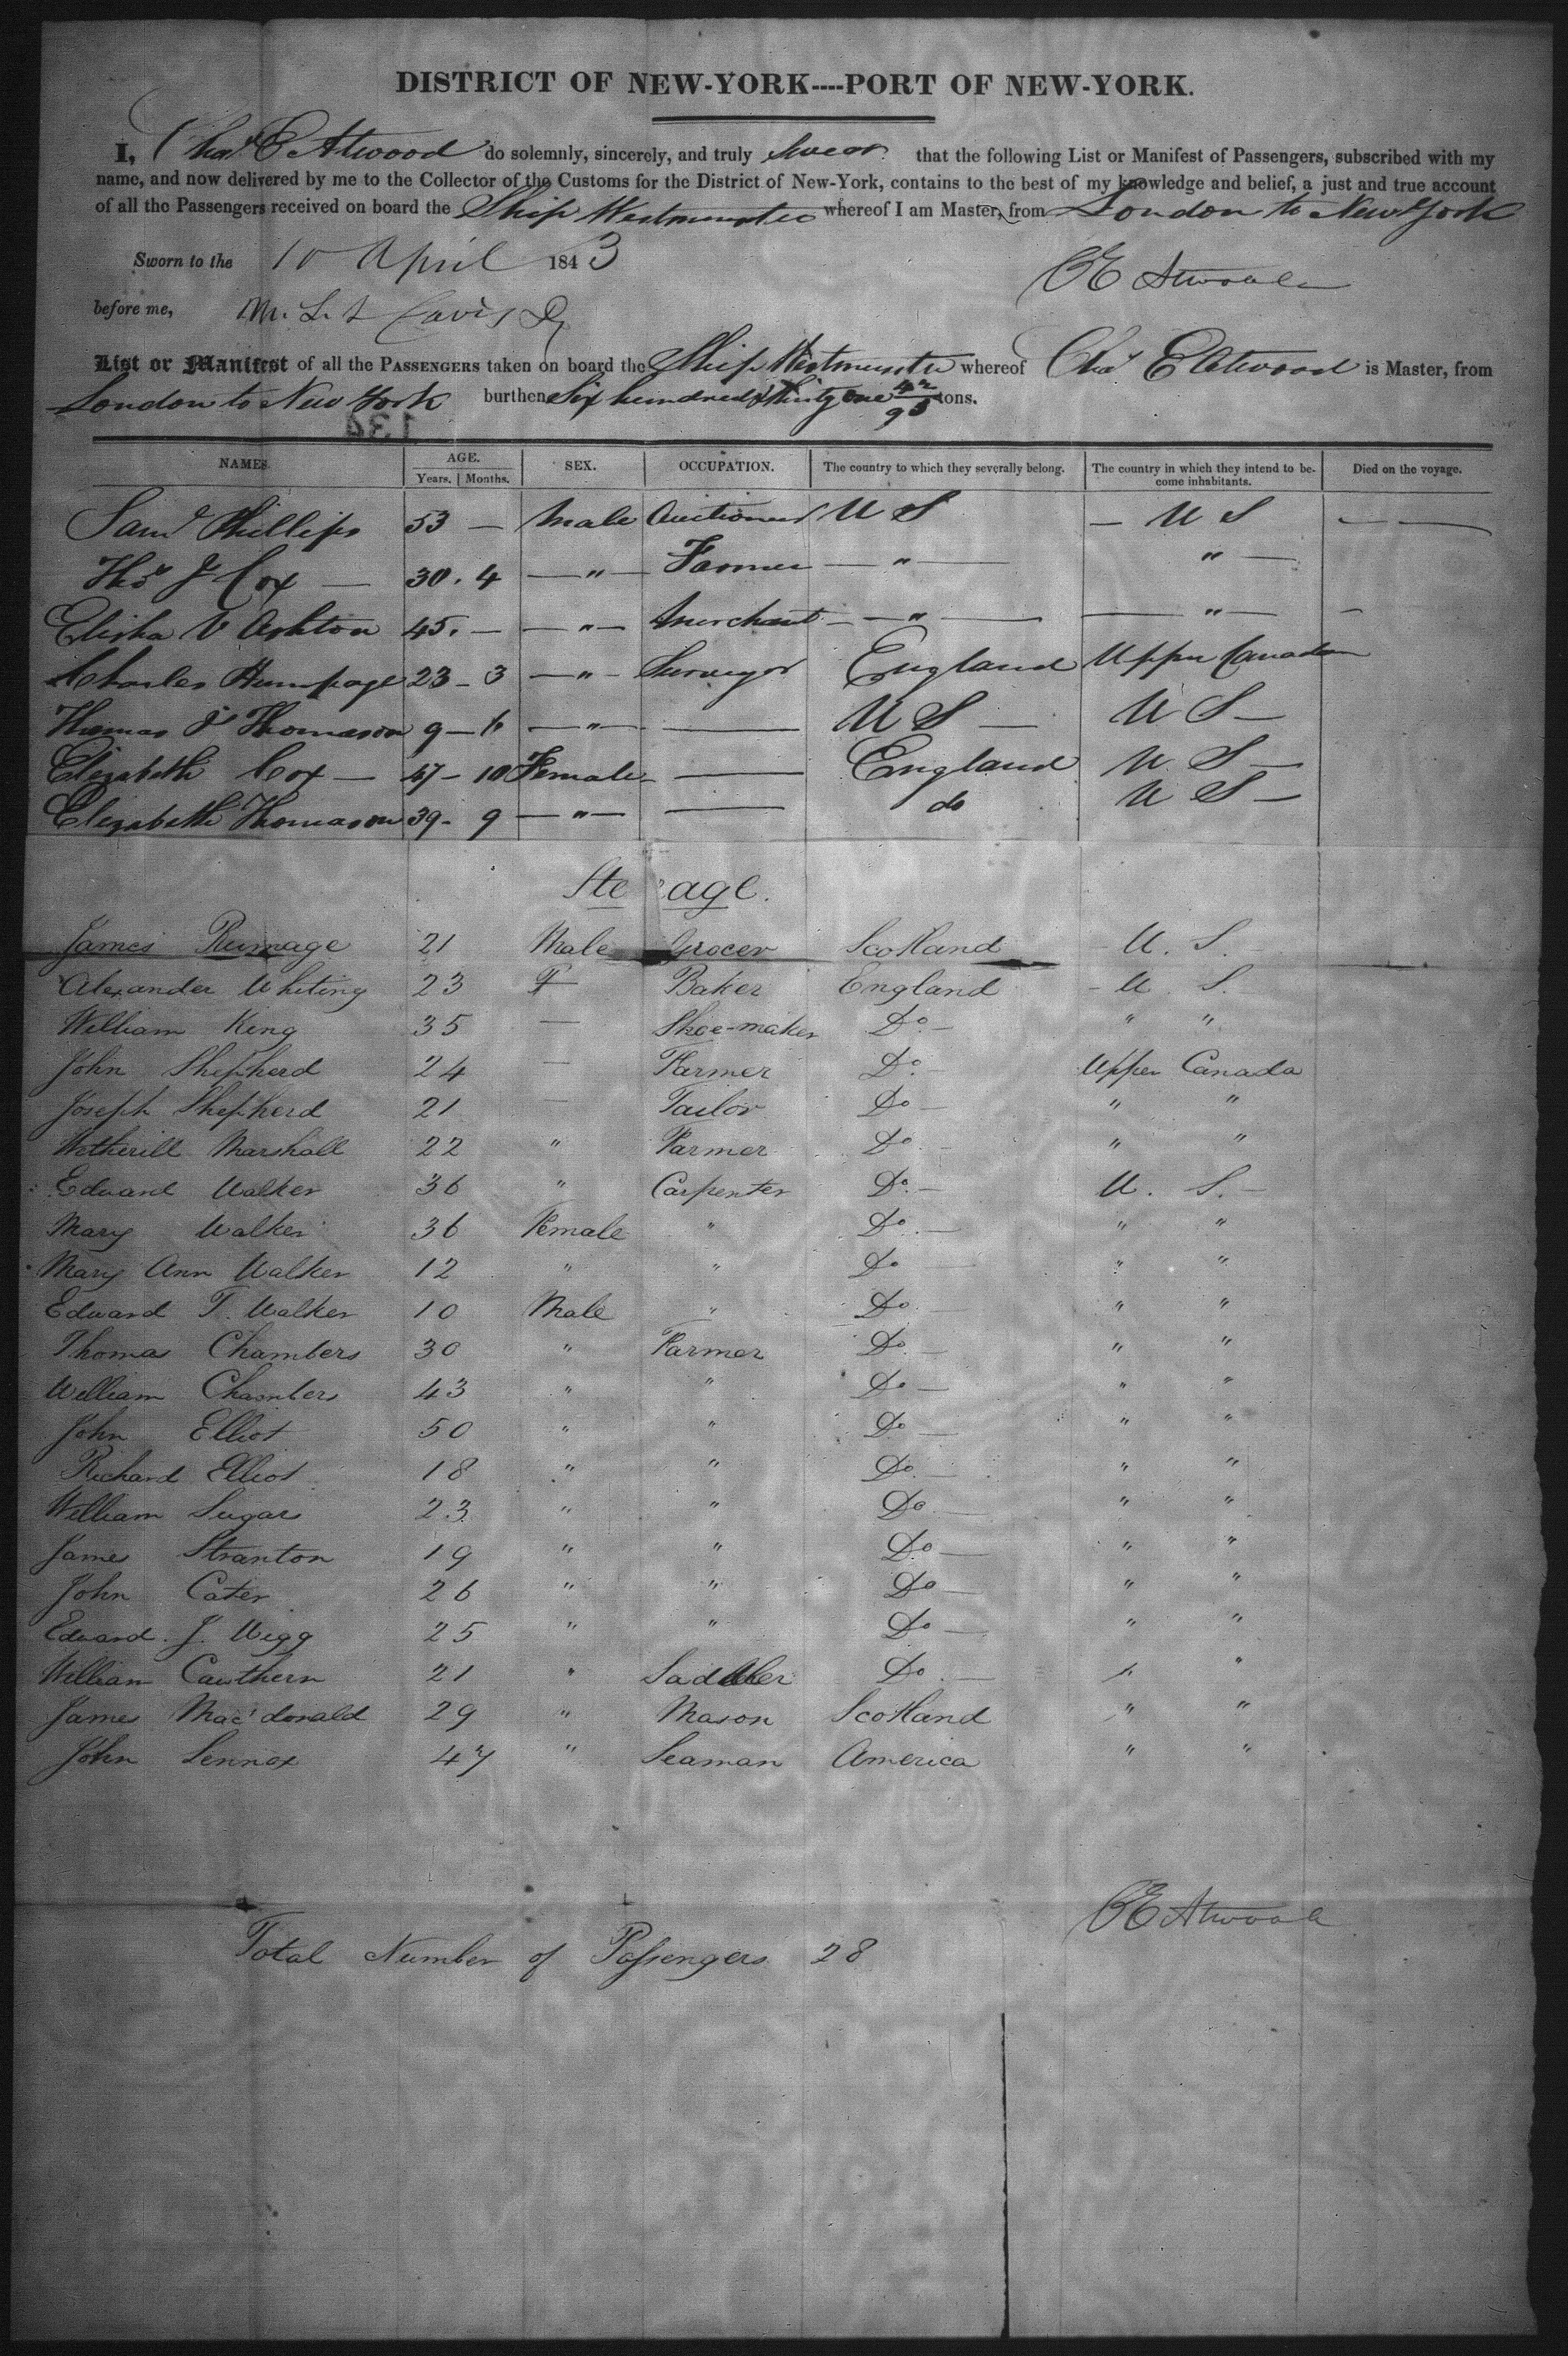 DISTRICT OF NEW-YORK----PORT OF NEW-YORK.
I, Chas E Atwood do solemnly, sincerely, and truly swear that the following List or Manifest of Passengers, subscribed with my
name, and now delivered by me to the Collector of the Customs for the District of New-York, contains to the best of my knowledge and belief, a just and true account
of all the Passengers received on board the Ship Westminster whereof I am Master, from London to New York
Sworn to the 10 April 1843
C E Atwood
before me,
List or Manifest of all the PASSENGERS taken on board the Ship Westminster whereof Chas E Atwood is Master, from
London to New York burthen Six hundred & thirty one 42/95 tons.
134
NAMES. AGE. SEX. OCCUPATION. The country to which they severally belong. The country in which they intend to be- Died on the voyage.
Years. Months. come inhabitants.
Saml Phillips 53 — Male Auctioneer U S — U S — —
Thos J Cox — 30 . 4 — " — Farmer — " — " —
Elisha V Ashton 45 . — — " — Merchant — — " — — " — —
Charles Humpage 23 - 3 — " — Surveyor England Upper Canada
Thomas J Thomason 9 - 6 — " — — U S — U S —
Elizabeth Cox — 47 - 10 Female — England U S —
Elizabeth Thomason 39 - 9 — " — — do U S —
Ste age.
James Rumage 21 Male Grocer Scotland U. S.
Alexander Whiting 23 Baker England - U S.
William King 35 — Shoe-maker Do. — " "
John Shepherd 24 — Farmer Do. — Upper Canada
Joseph Shepherd 21 — Tailor Do — " "
Wetherill Marshall 22 " Farmer Do — " "
Edward Walker 36 " Carpenter Do. — U. S. —
Mary Walker 36 Female " Do. — " "
Mary Ann Walker 12 " " Do — " "
Edward T. Walker 10 Male " Do. — " "
Thomas Chambers 30 " Farmer Do. — " "
William Chambers 43 " " Do — " "
John Elliot 50 " " Do — " "
Richard Elliot 18 " " Do. " "
William Sugars 23 " " Do — " "
James Stranton 19 " " Do — " "
John Cater 26 " " Do — " "
Edward J. Wigg 25 " " Do — " "
William Cawthern 21 " Saddler Do. — " "
James Mac'donald 29 " Mason Scotland " "
John Lennox 47 " Seaman America " "
C E Atwood
Total Number of Passengers 28